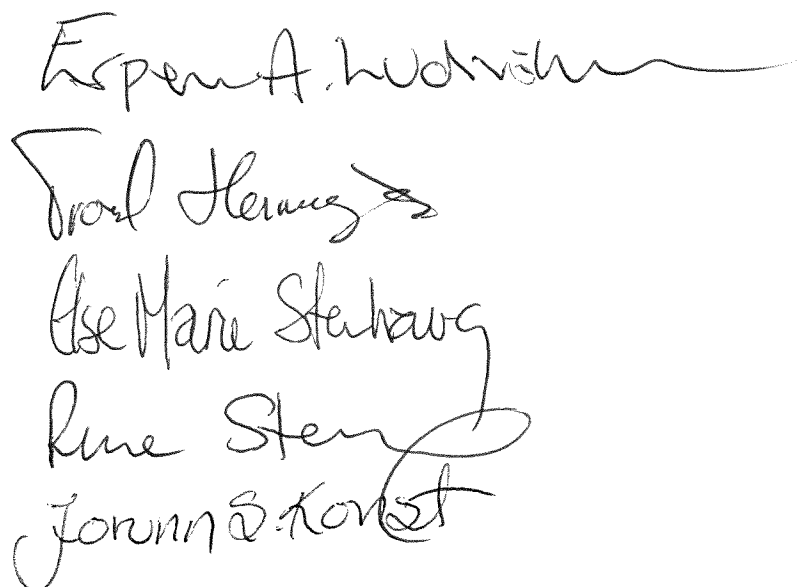 Espen A. Ludvi
Trond
Else Marie Stenhaug
Rune Sten
Jorunn S. Konst